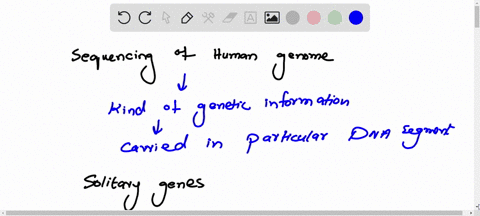 Sequencing of Human genome
↓
Kind of genetic information
↓
Carried in particular DNA segment
Solitary genes